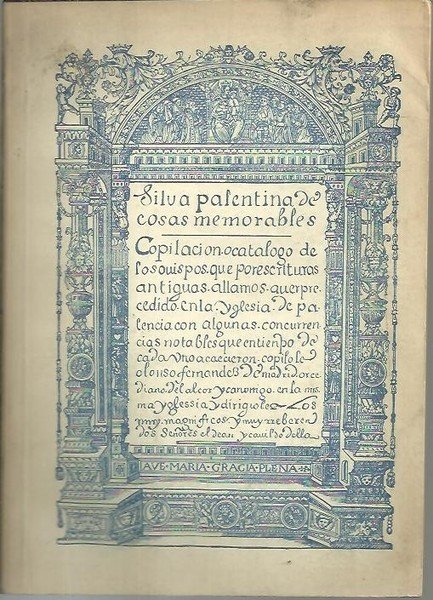 Silva palentina de
cosas memorables
Copilacion. o catalogo de
los ouispos. que por escrituras
antiguas. allamos. auer pre
cedido. en la yglesia. de pa
lencia con algunas. concurren
cias notables que entiendo de
cada vno acaecieron. copilole
alonso fernandez de madrid. arce
diano del alcor y canonigo. en la mis
ma yglessia y dirigiole a los
muy. magnificos y muy rreberen
dos Señores el dean y cauildo della
AVE·MARIA·GRACIA·PLENA